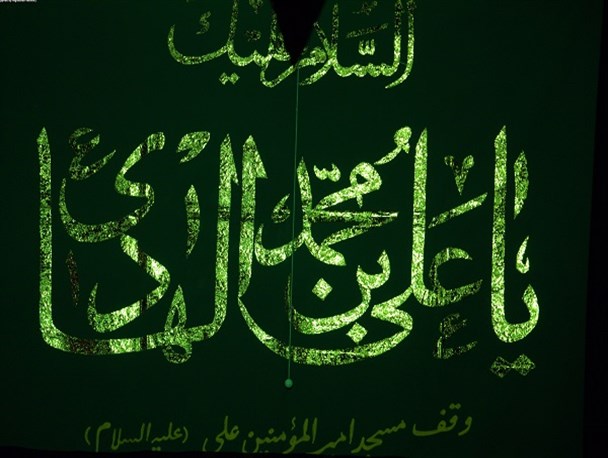 السلام علیک
یا علی بن محمد الهادی
وقف مسجد امیر المؤمنین علی (علیه السلام)